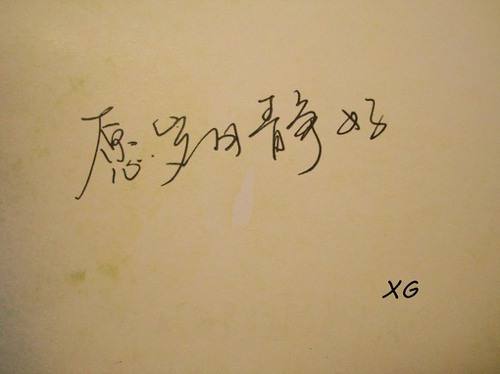 愿岁月静好
XG